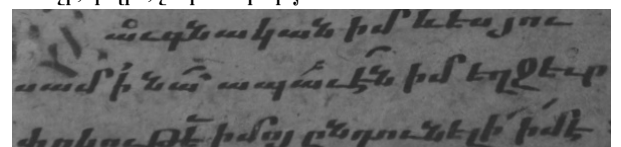 աւգնական իմ և ես յու
սամ ի նա՛ ապաւէն իմ եղջեւր
փրկութե՟ իմոյ ընդունելի՛ իմ է